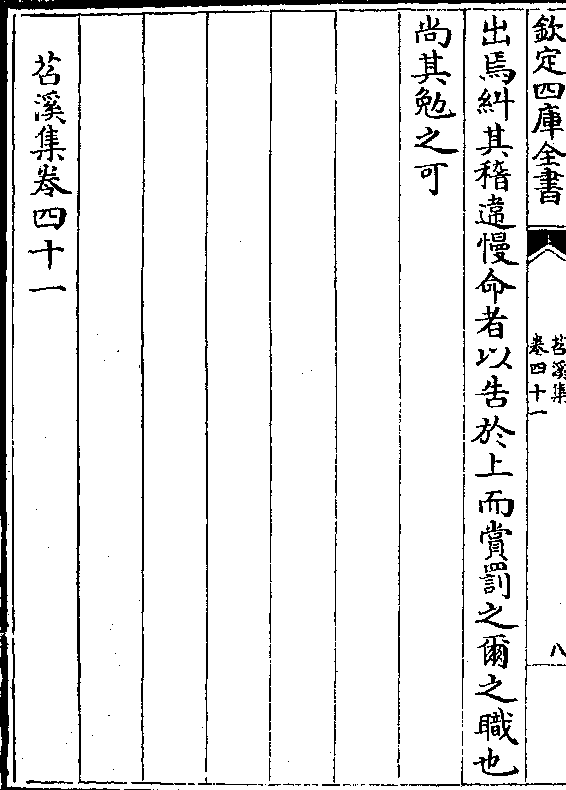 欽定四庫全書
苕溪集
卷四十一
八
出焉糾其稽違慢命者以告於上而賞罰之爾之職也
尚其勉之可
苕溪集卷四十一